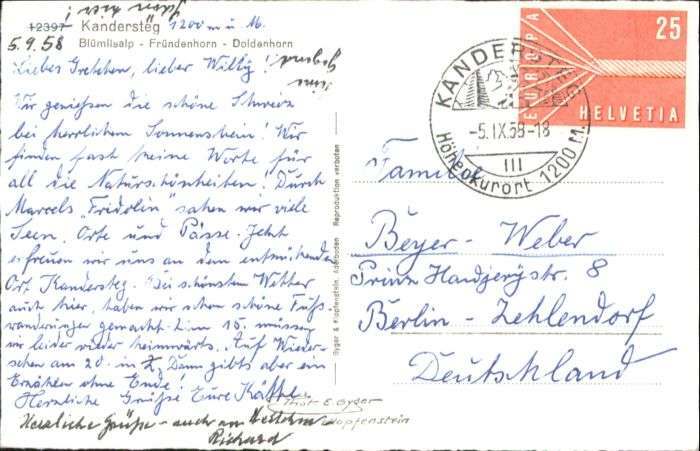 12397 Kandersteg 1200 m ü. M.
Blümlisalp - Fründenhorn - Doldenhorn
5.9.58
Liebes Gretchen, lieber Willy!
Wir genießen die schöne Schweiz
bei herrlichem Sonnenschein! Wir
finden fast keine Worte für
all die Naturschönheiten! Durch
Marcels „Fridolin" sahen wir viele
Seen, Orte und Pässe. Jetzt
erfreuen wir uns an dem entzückenden
Ort Kandersteg. Bei schönstem Wetter
auch hier, haben wir schon schöne Fuß-
wanderungen gemacht. Am 15. müssen
wir leider wieder heimwärts. Auf Wieder-
sehen am 20. in Z. Dann gibts aber ein
Erzählen ohne Ende! 
Herzliche Grüße Eure Käthe
Herzliche Grüße - auch an
Richard
Gyger
Klopfenstein
Gyger & Klopfenstein, Adelboden Reproduktion verboten
KANDERSTEG
-5.IX.58-18
III
Höhenkurort 1200 M.
EUROPA
25
HELVETIA
Familie
Beyer - Weber
Prinz Handjerystr. 8
Berlin - Zehlendorf
Deutschland